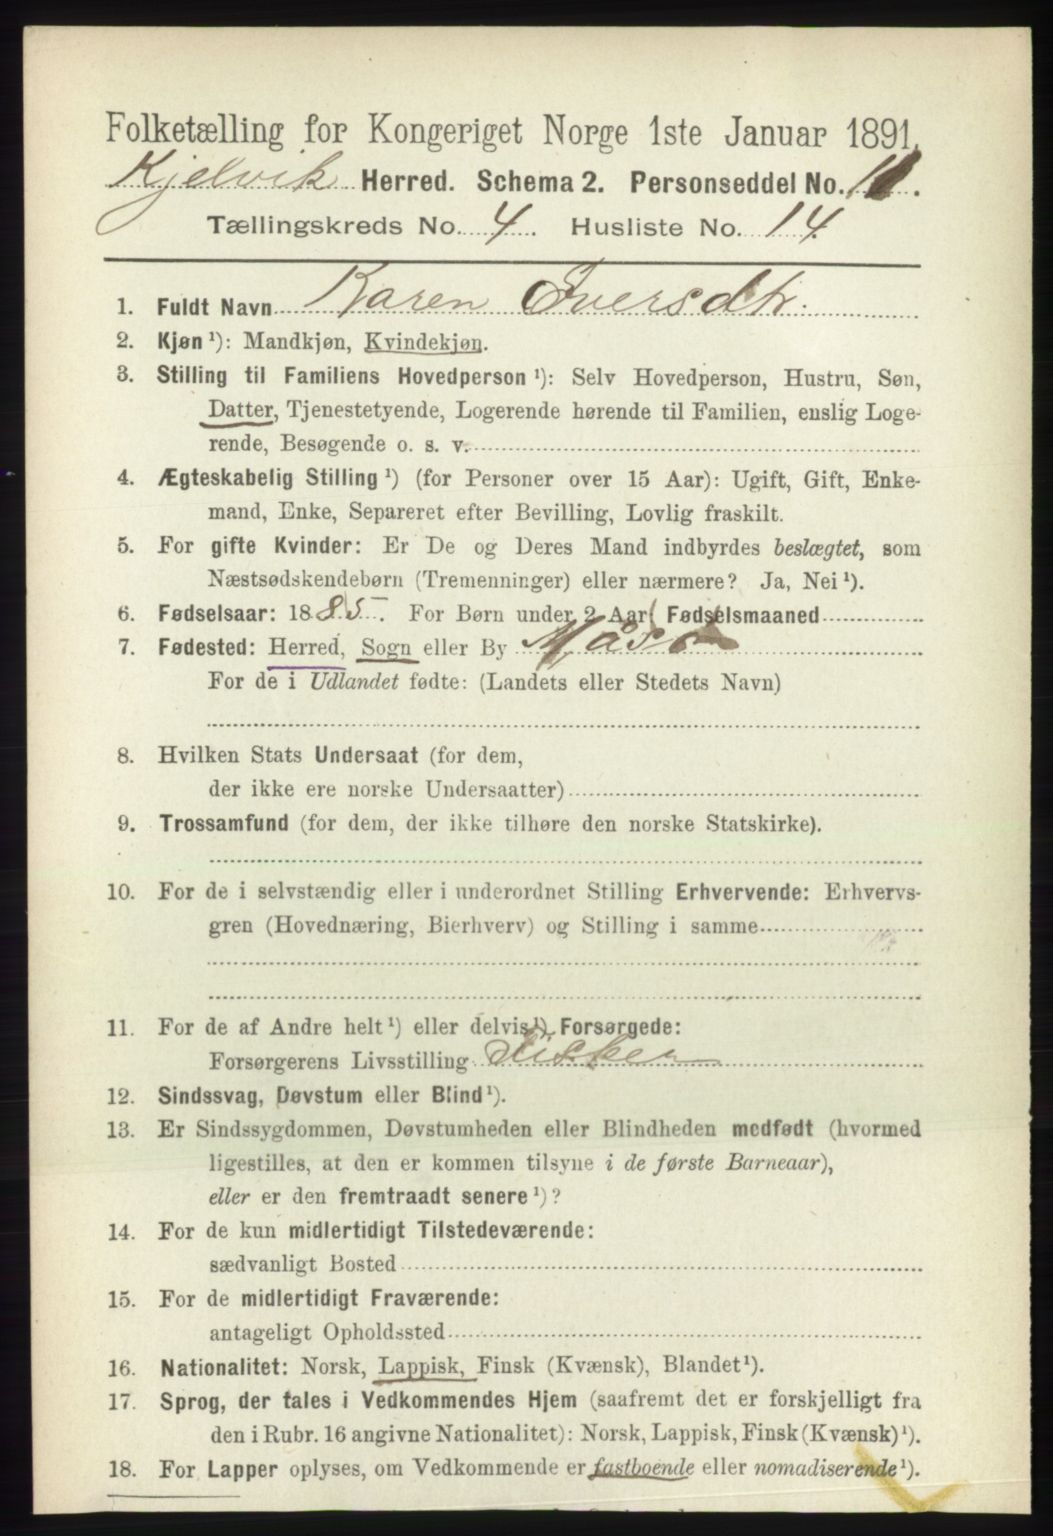 Folketælling for Kongeriget Norge 1ste Januar 1891.
Kjelvik Herred. Schema 2. Personseddel No. 11.
Tællingskreds No. 4. Husliste No. 14.
1. Fuldt Navn Karen Iversdtr.
2. Kjøn ¹): Mandkjøn, Kvindekjøn.
3. Stilling til Familiens Hovedperson ¹): Selv Hovedperson, Hustru, Søn,
Datter, Tjenestetyende, Logerende hørende til Familien, enslig Loge-
rende, Besøgende o. s. v.
4. Ægteskabelig Stilling ¹) (for Personer over 15 Aar): Ugift, Gift, Enke-
mand, Enke, Separeret efter Bevilling, Lovlig fraskilt.
5. For gifte Kvinder: Er De og Deres Mand indbyrdes beslægtet, som
Næstsødskendebørn (Tremenninger) eller nærmere? Ja, Nei ¹).
6. Fødselsaar: 1885. For Børn under 2 Aar: Fødselsmaaned
7. Fødested: Herred, Sogn eller By Måsø
For de i Udlandet fødte: (Landets eller Stedets Navn)
8. Hvilken Stats Undersaat (for dem,
der ikke ere norske Undersaatter)
9. Trossamfund (for dem, der ikke tilhøre den norske Statskirke).
10. For de i selvstændig eller i underordnet Stilling Erhvervende: Erhvervs-
gren (Hovednæring, Bierhverv) og Stilling i samme
11. For de af Andre helt ¹) eller delvis ¹) Forsørgede:
Forsørgerens Livsstilling Fisker
12. Sindssvag, Døvstum eller Blind ¹).
13. Er Sindssygdommen, Døvstumheden eller Blindheden medfødt (hvormed
ligestilles, at den er kommen tilsyne i de første Barneaar),
eller er den fremtraadt senere ¹)?
14. For de kun midlertidigt Tilstedeværende:
sædvanligt Bosted
15. For de midlertidigt Fraværende:
antageligt Opholdssted
16. Nationalitet: Norsk, Lappisk, Finsk (Kvænsk), Blandet ¹).
17. Sprog, der tales i Vedkommendes Hjem (saafremt det er forskjelligt fra
den i Rubr. 16 angivne Nationalitet): Norsk, Lappisk, Finsk (Kvænsk) ¹).
18. For Lapper oplyses, om Vedkommende er fastboende eller nomadiserende ¹).